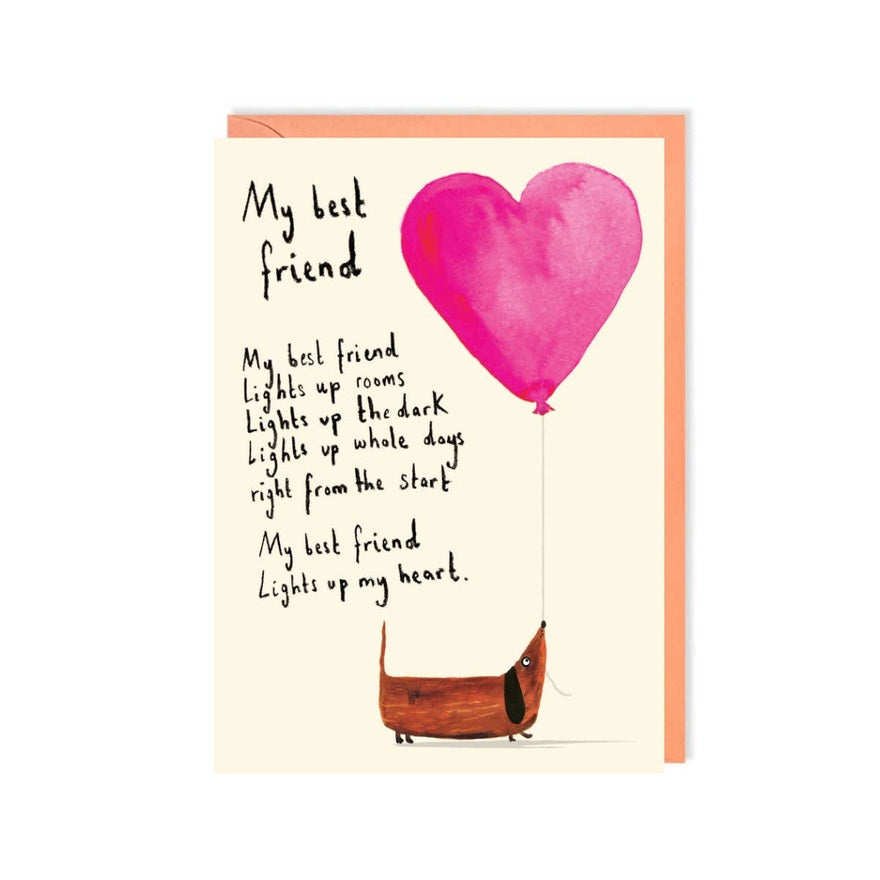 My best
friend
My best friend
Lights up rooms
Lights up the dark
Lights up whole days
right from the start
My best friend
Lights up my heart.